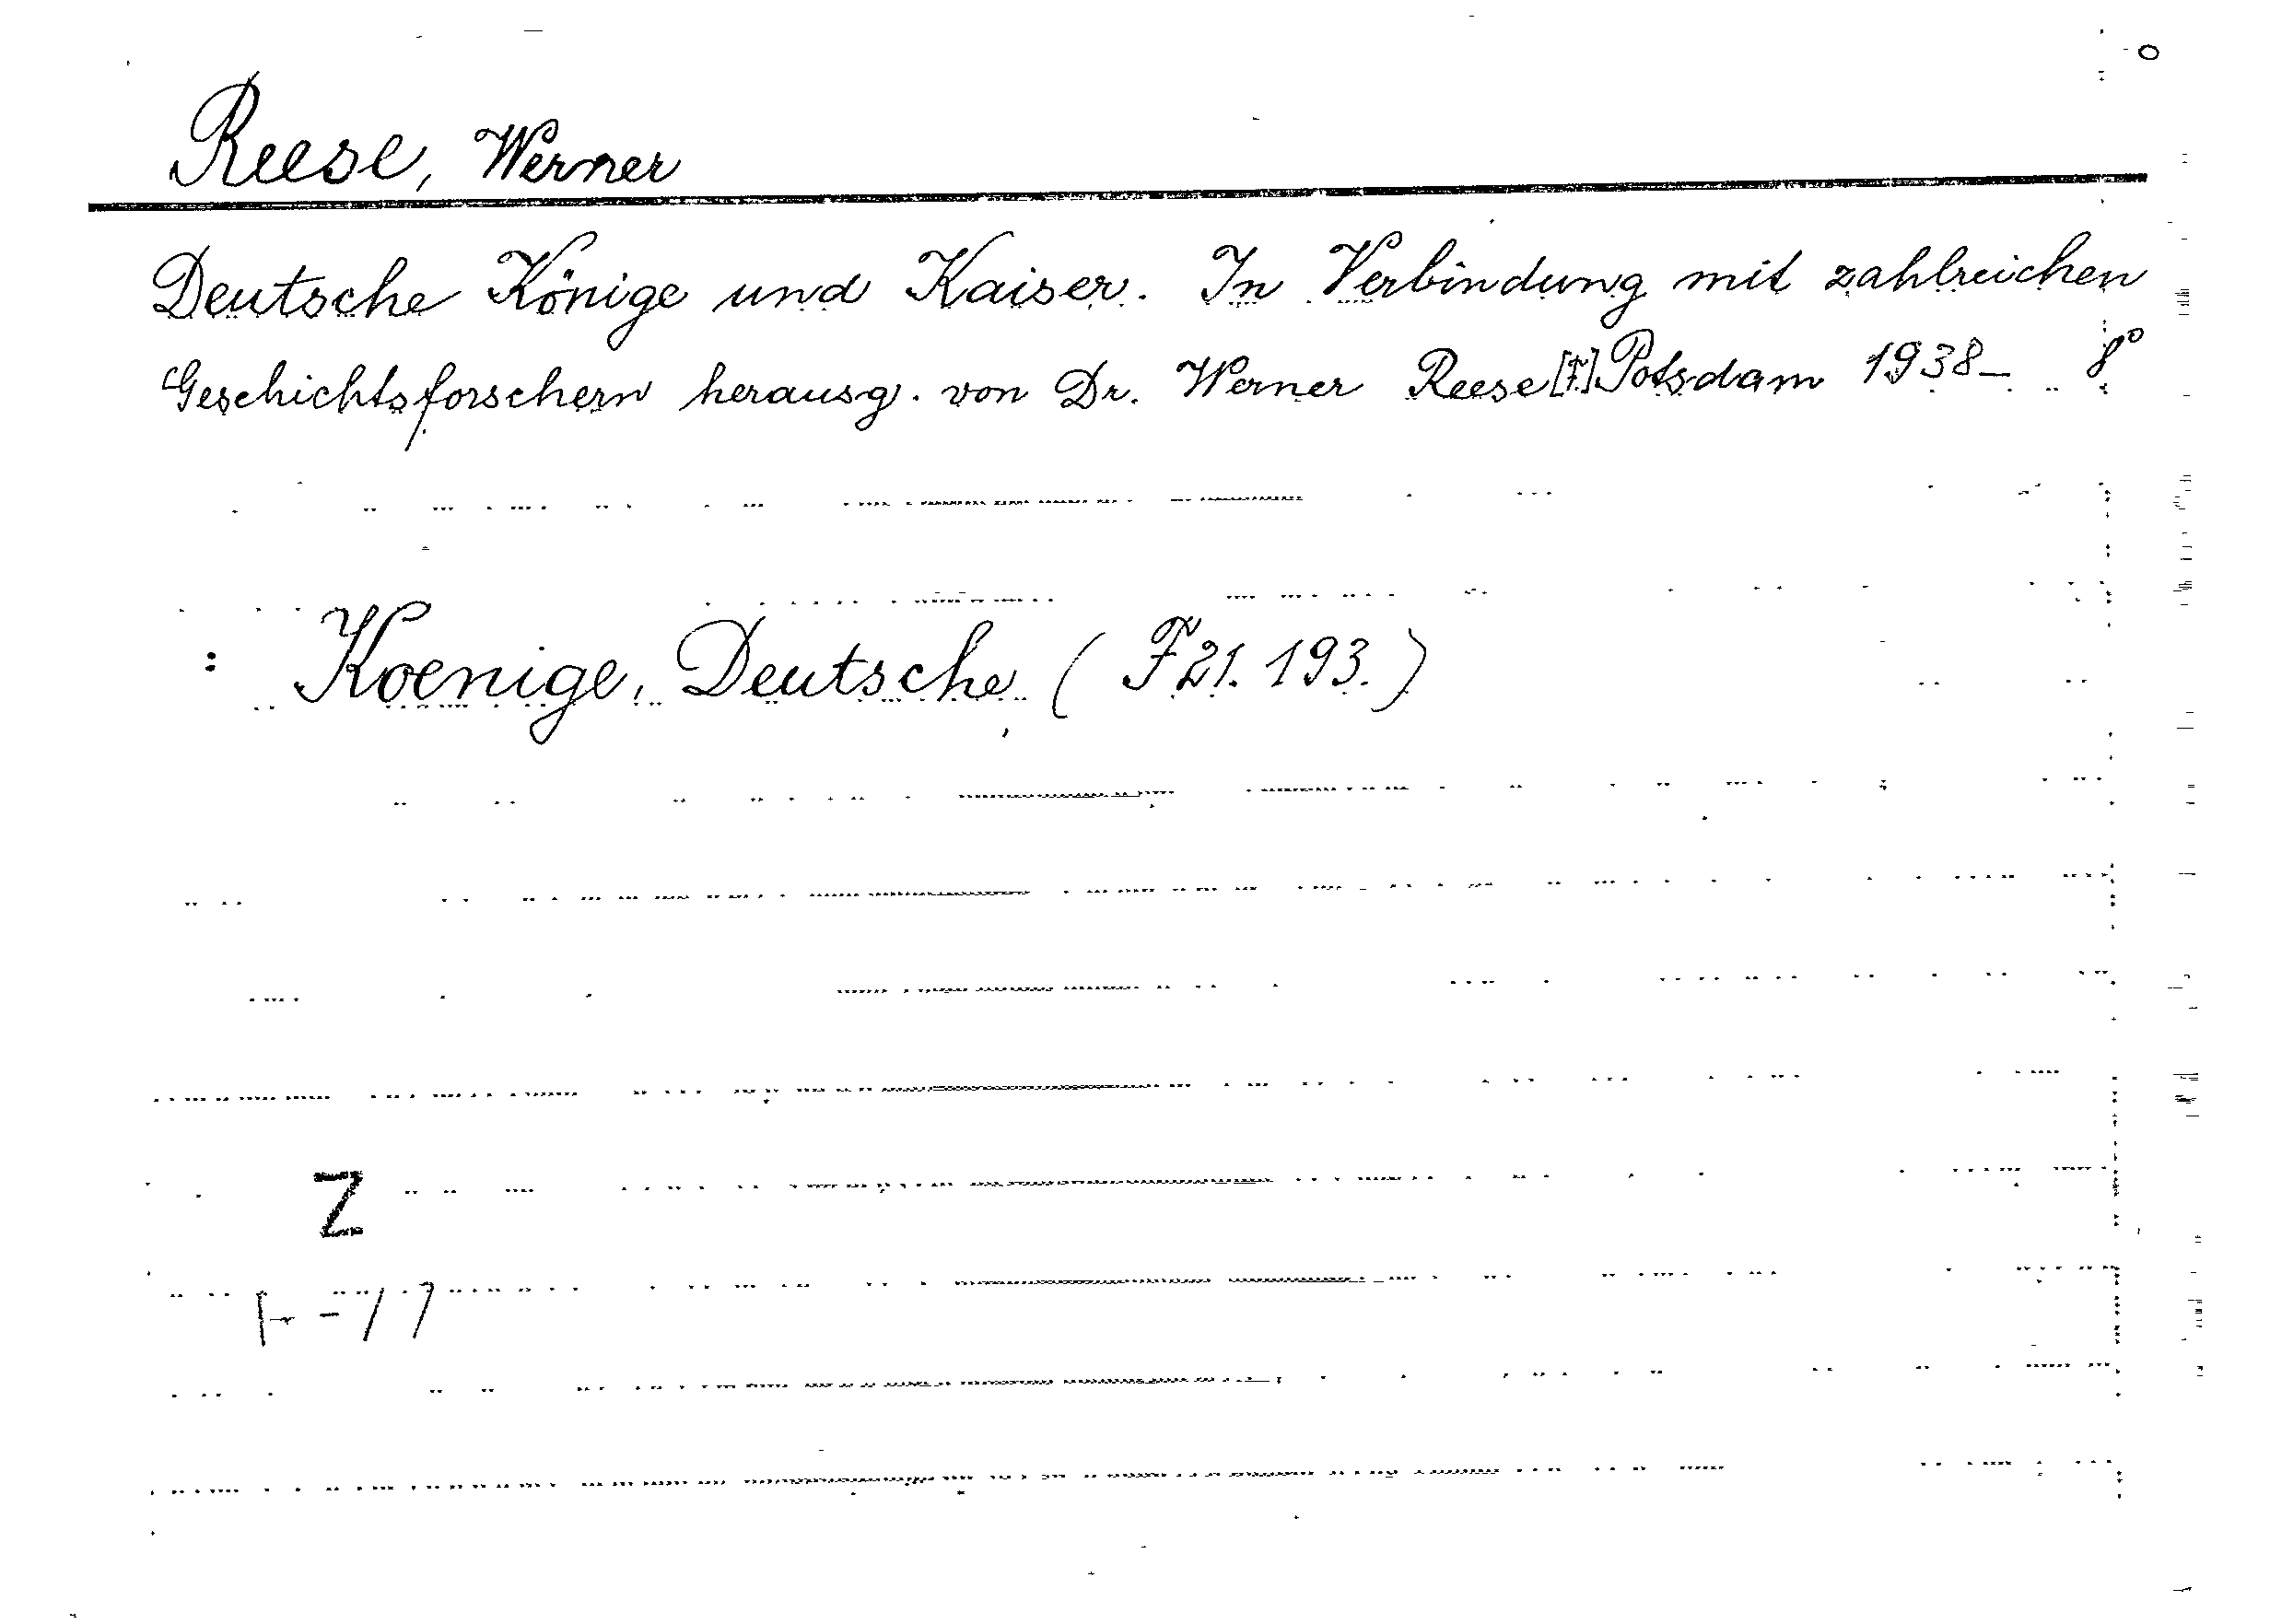 Reese, Werner
Deutsche Könige und Kaiser. In Verbindung mit zahlreichen
Geschichtsforschern herausg. von Dr. Werner Reese[†] Potsdam 1938– 8°
: Koenige, Deutsche (F21. 193.)
Z